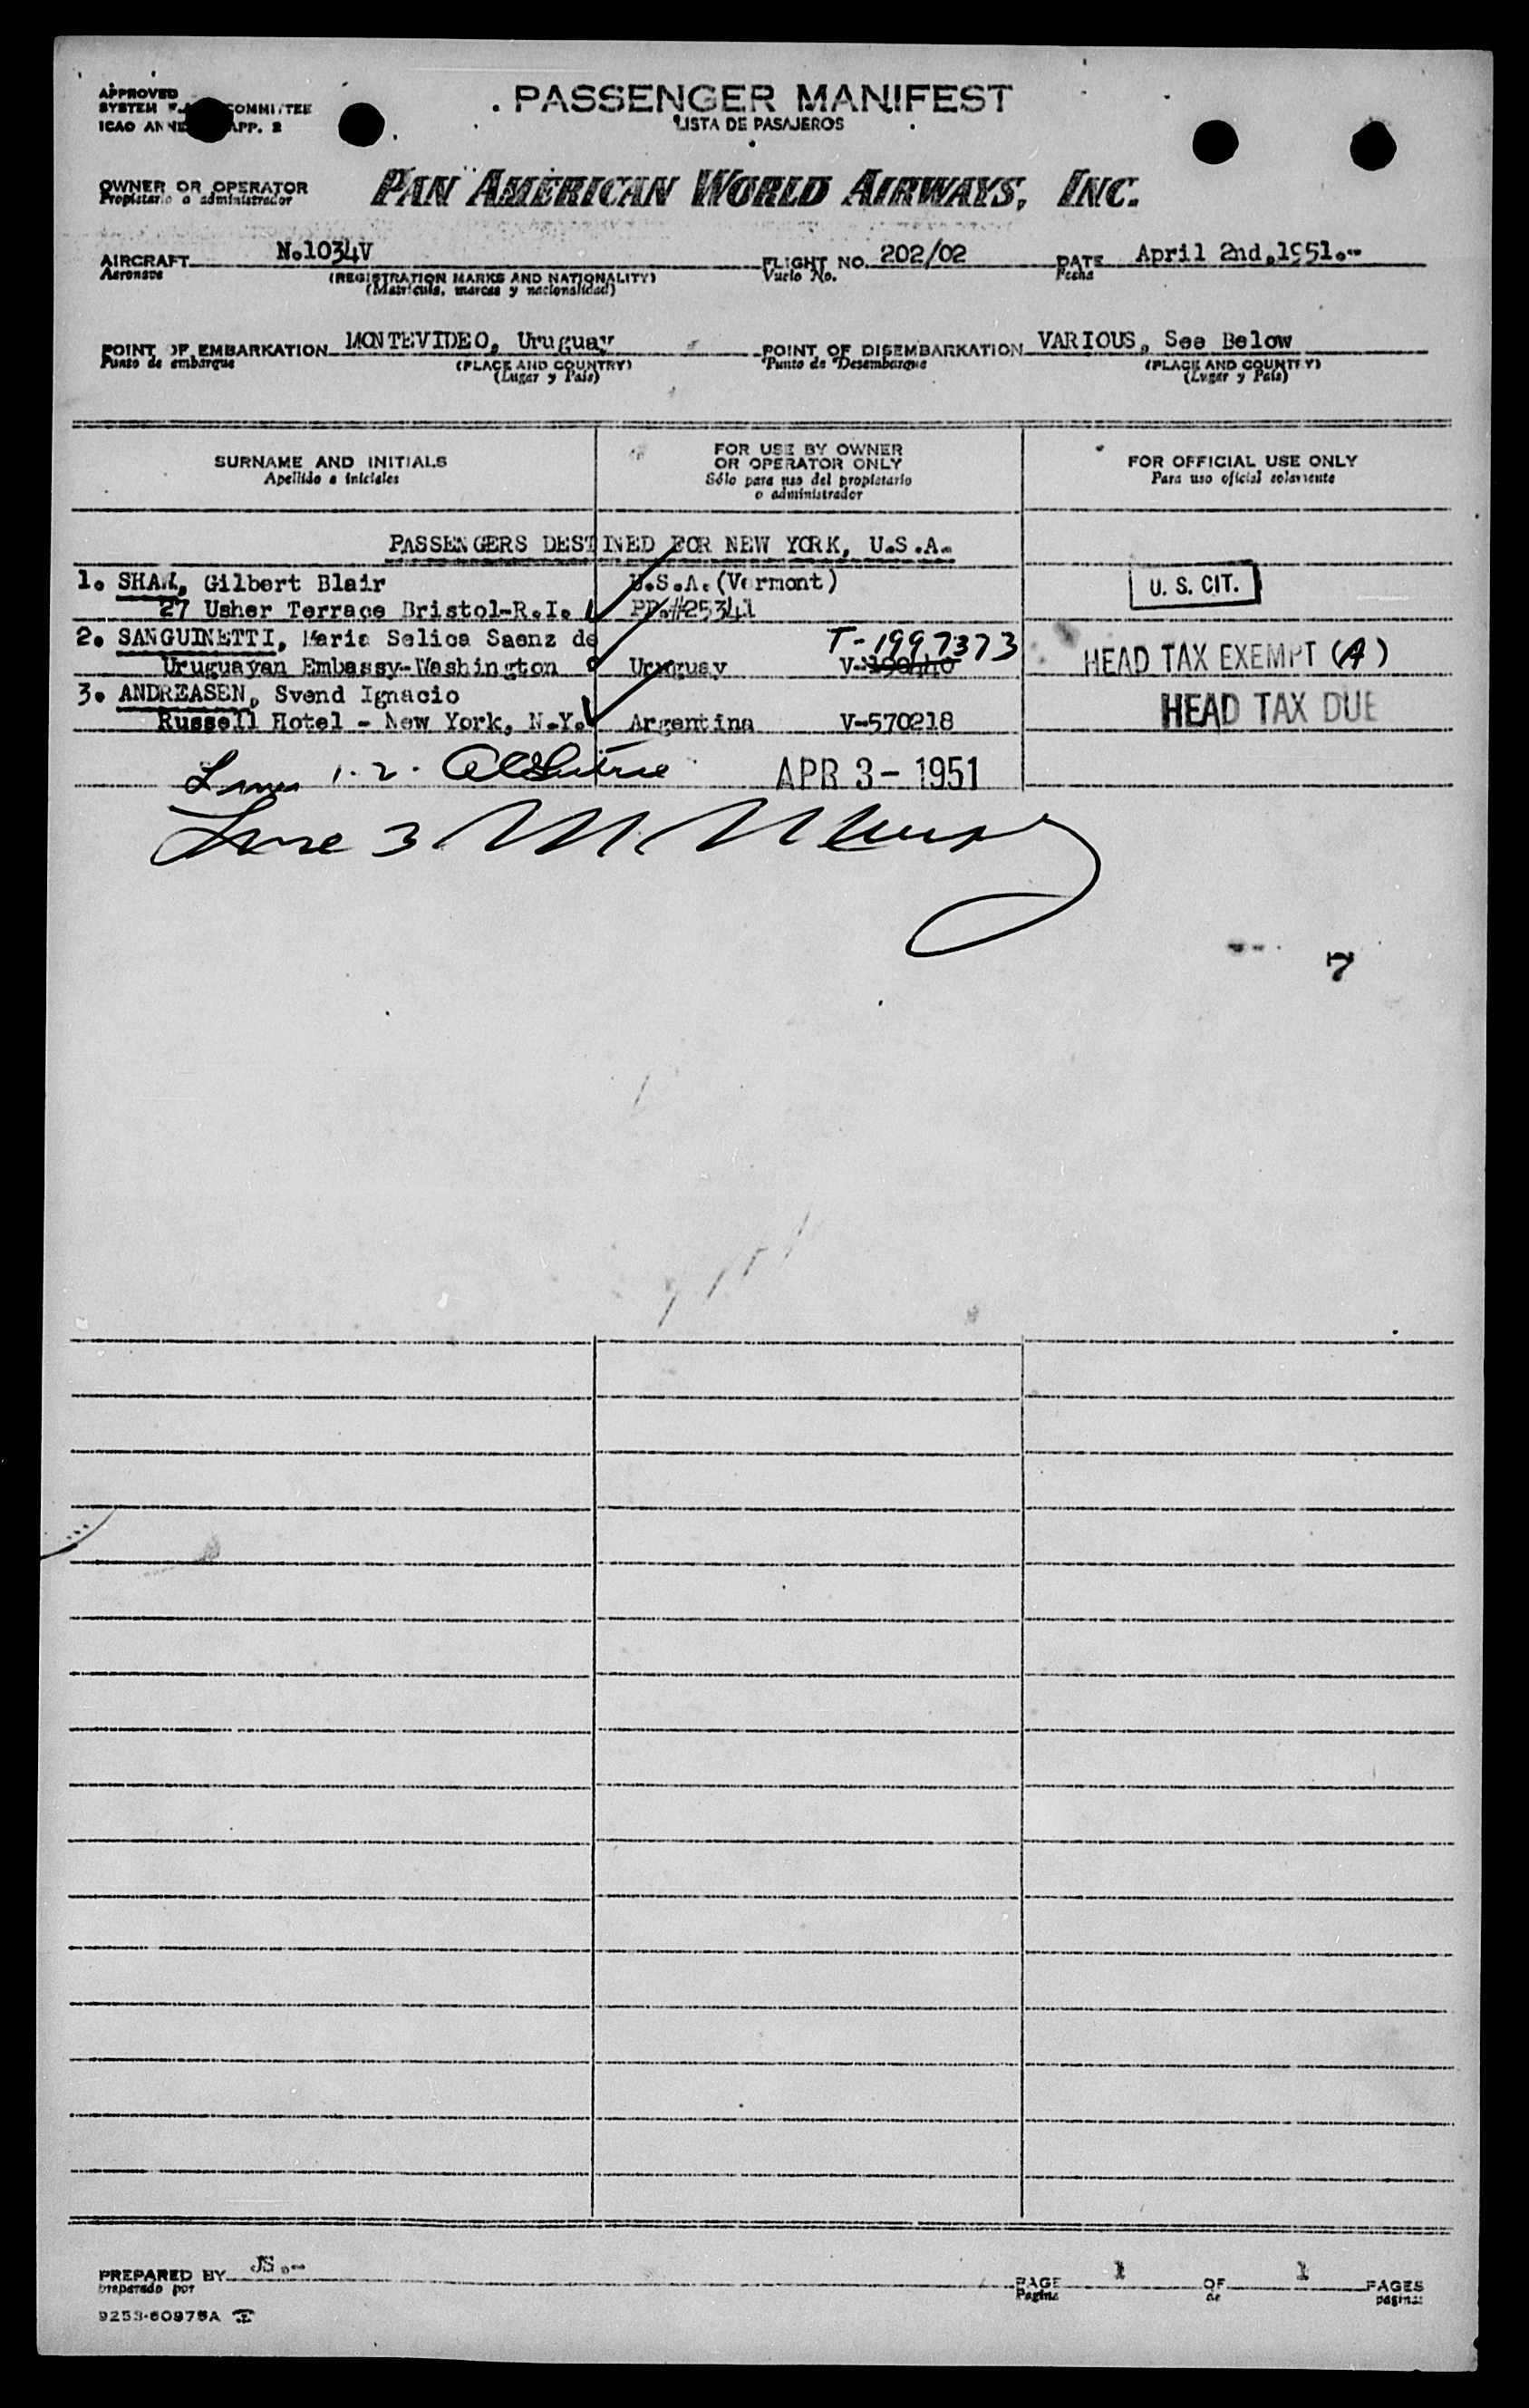 APPROVED
SYSTEM COMMITTEE
ICAO ANNE APP. 2
PASSENGER MANIFEST
LISTA DE PASAJEROS
OWNER OR OPERATOR
Propietario o administrador
PAN AMERICAN WORLD AIRWAYS, INC.
AIRCRAFT N.1034V FLIGHT NO. 202/02 DATE April 2nd,1951.--
Aeronave (REGISTRATION MARKS AND NATIONALITY) Vuelo No. Fecha
(Matrícula, marcas y nacionalidad)
POINT OF EMBARKATION MONTEVIDEO, Uruguay POINT OF DISEMBARKATION VARIOUS, See Below
Punto de embarque (PLACE AND COUNTRY) Punto de Desembarque (PLACE AND COUNTRY)
(Lugar y País) (Lugar y País)
SURNAME AND INITIALS FOR USE BY OWNER OR OPERATOR ONLY FOR OFFICIAL USE ONLY
Apellido e iniciales Sólo para uso del propietario o administrador Para uso oficial solamente
PASSENGERS DESTINED FOR NEW YORK, U.S.A.
1. SHAW, Gilbert Blair U.S.A.(Vermont) U. S. CIT.
27 Usher Terrace Bristol-R.I. PP.#25341
2. SANGUINETTI, Maria Selica Saenz de T-1997373
Uruguayan Embassy-Washington Uruguay HEAD TAX EXEMPT (A)
3. ANDREASEN, Svend Ignacio HEAD TAX DUE
Russell Hotel - New York, N.Y. Argentina V-570218
1. 2. APR 3- 1951
Line 3
7
PREPARED BY JS.-- PAGE 1 OF 1 PAGES
preparado por Pagina de paginas
9253-60975A